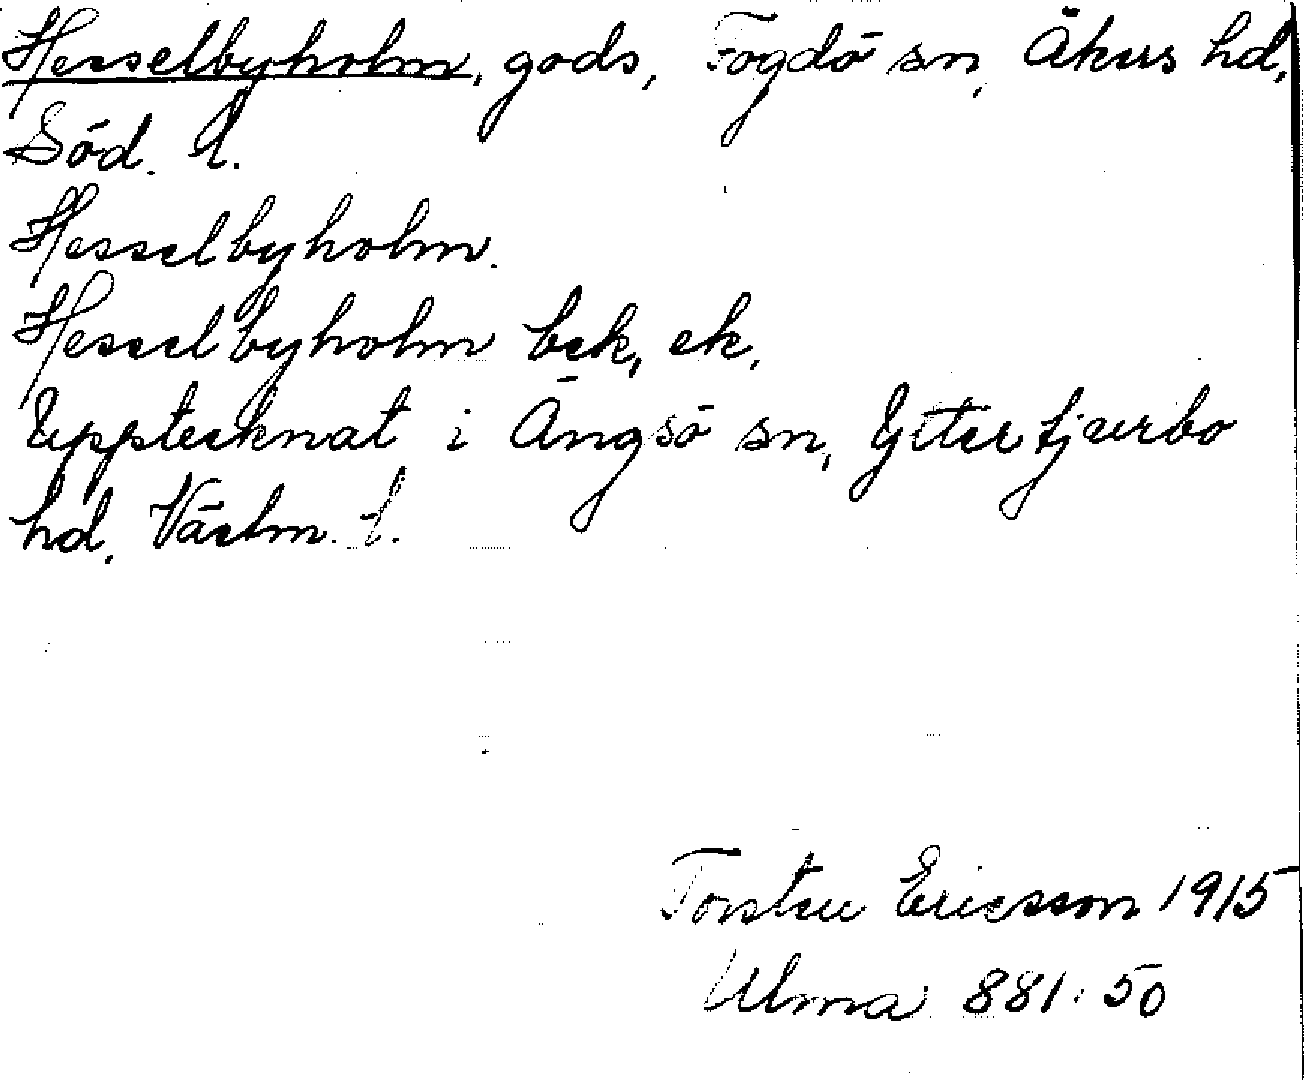 Hesselbyholm, gods, Fogdö sn, Åkers hd,
Söd. l.
Hesselbyholm.
Hesselbyholm bek, ek,
Upptecknat i Ängsö sn, Yttertjurbo
hd, Västm. l.
Torsten Ericsson 1915
Ulma 881:50